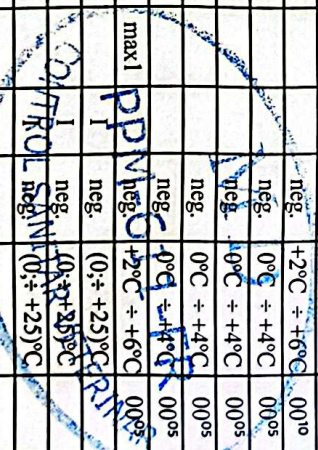 neg. +2°C ÷ +6°C 00¹⁰
neg. 0°C ÷ +4°C 00⁰⁵
neg. 0°C ÷ +4°C 00⁰⁵
neg. 0°C ÷ +4°C 00⁰⁵
neg. 0°C ÷ +4°C 00⁰⁵
max1 neg. +2°C ÷ +6°C 00⁰⁵
I neg. (0;÷ +25)°C
I neg. (0;÷ +25)°C
neg. (0;÷ +25)°C
CONTROL SANITAR VETERINAR